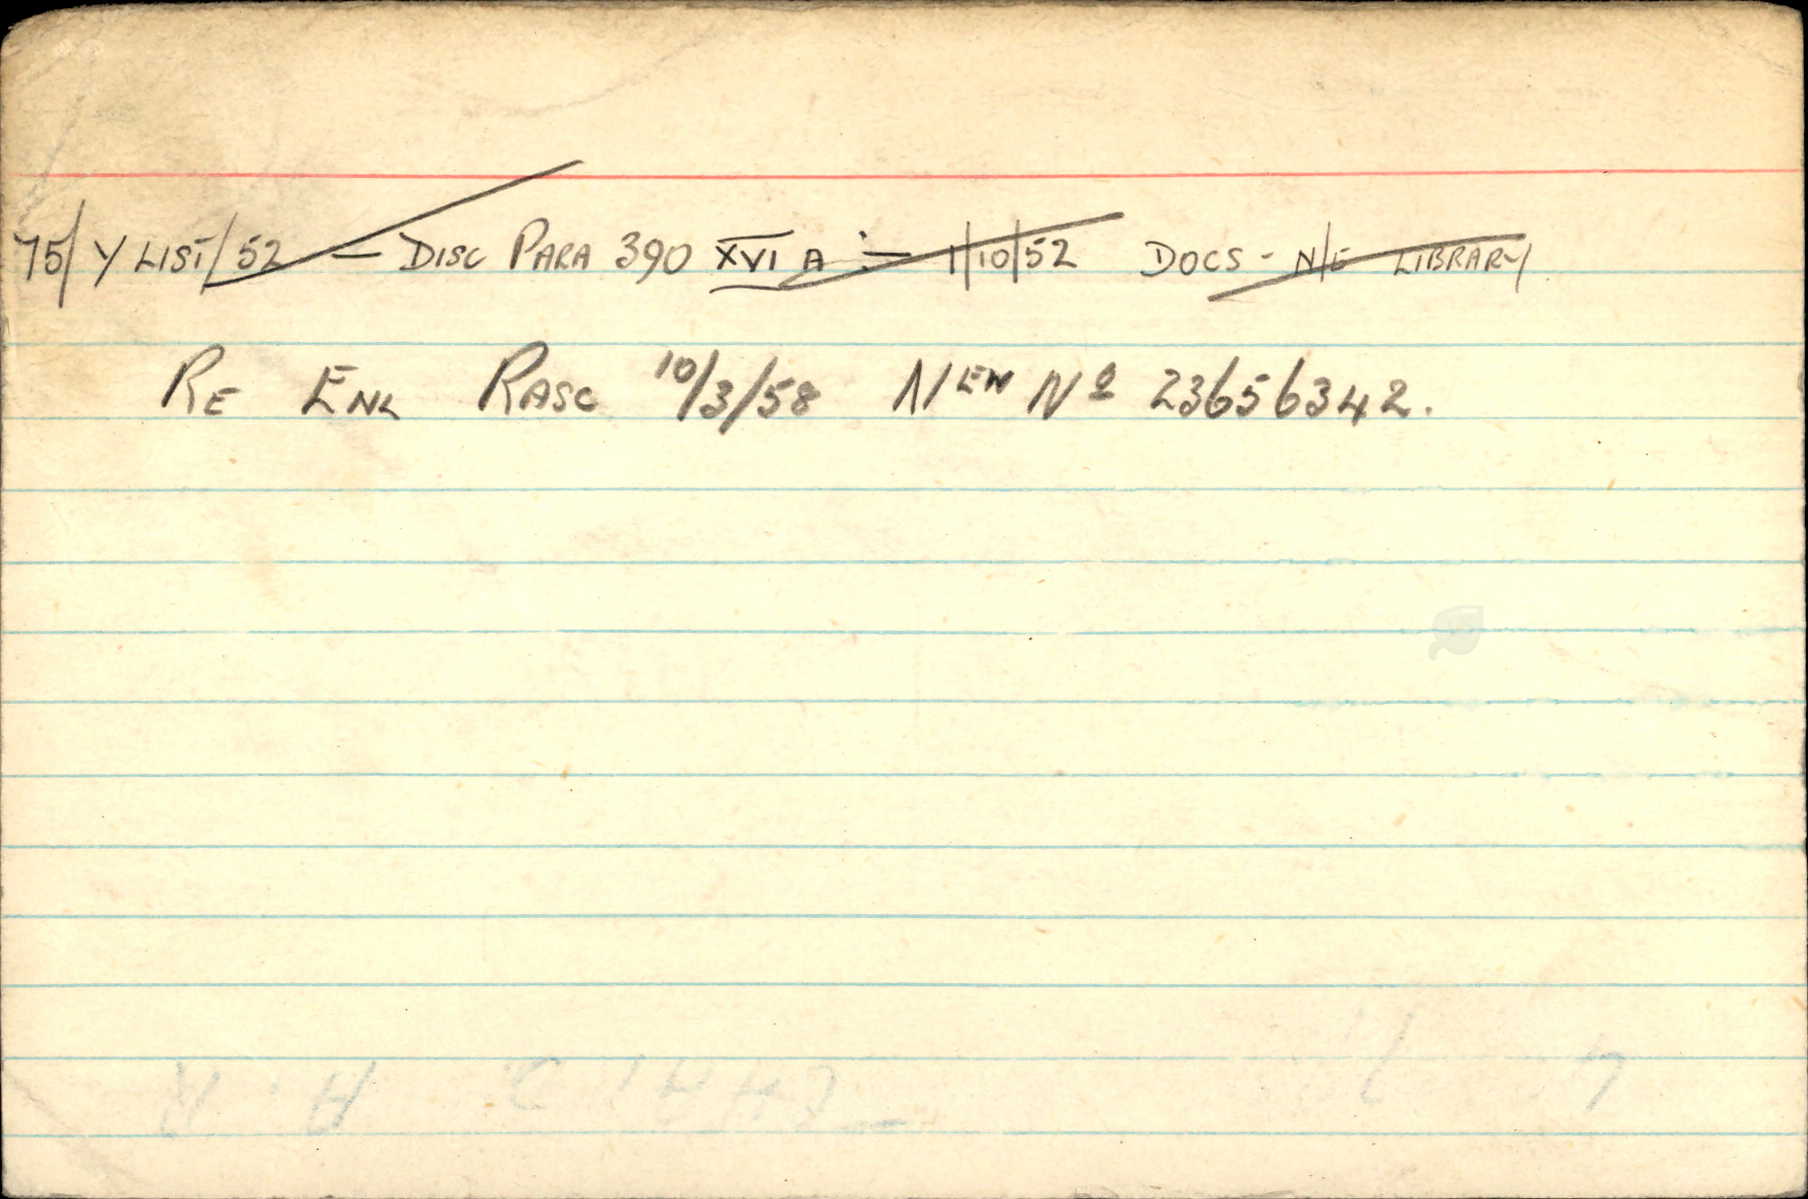 75/ Y LIST/52 — DISC PARA 390 XVI A :— 1/10/52 DOCS - N/E LIBRARY
RE ENL RASC 10/3/58 NEW Nº 23656342.